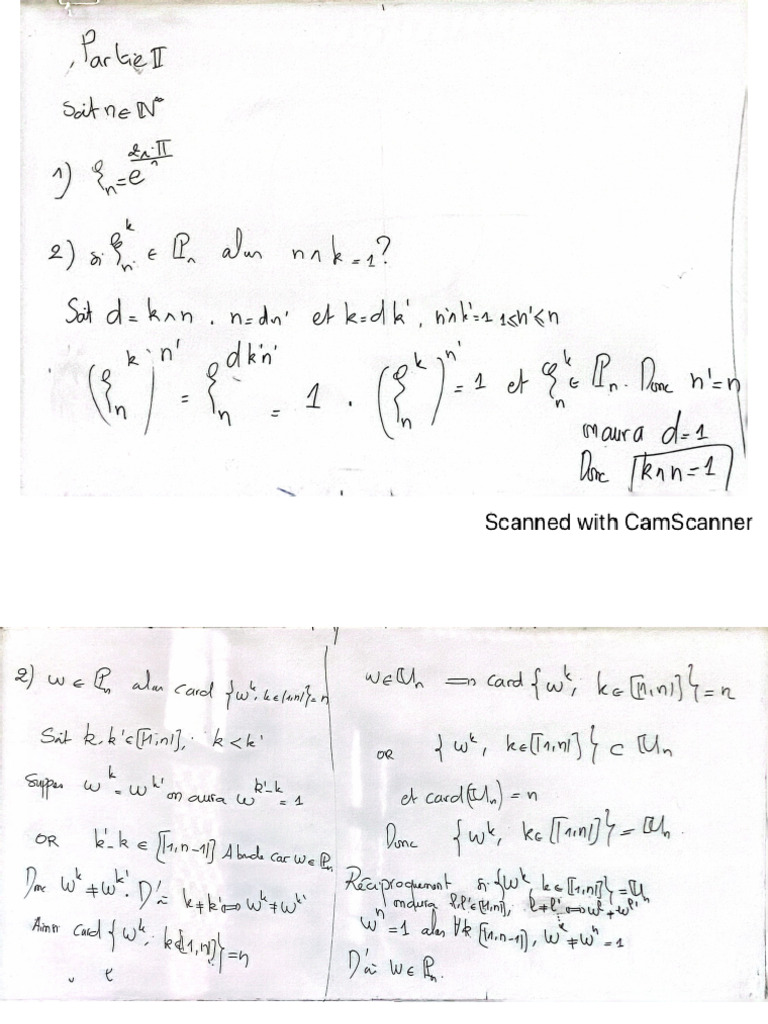 Partie II
Soit n∈ℕ*
1) ξₙ=e^(2iπ/n)
2) si ξₙᵏ ∈ ℙₙ alors n∧k=1?
Soit d=k∧n. n=dn' et k=dk', n'∧k'=1 1≤n'≤n
(ξₙᵏ)ⁿ' = ξₙ^(dk'n') = 1 . (ξₙᵏ)ⁿ' = 1 et ξₙᵏ ∈ ℙₙ. Donc n'=n
d=1
Donc k∧n=1
Scanned with CamScanner
2) w∈ℙₙ alors card {wᵏ, k∈[|1,n|]}=n
Soit k,k'∈[|1,n|], k<k'
wᵏ=wᵏ' on aura wᵏ'⁻ᵏ=1
OR k'-k ∈ [|1,n-1|] Absurde car w∈ℙₙ
Donc wᵏ≠wᵏ'. D'où k≠k' ⟺ wᵏ≠wᵏ'
Ainsi card {wᵏ, k∈[|1,n|]}=n
w∈𝕌ₙ ⟹ card {wᵏ, k∈[|1,n|]}=n
OR {wᵏ, k∈[|1,n|]} ⊂ 𝕌ₙ
et card(𝕌ₙ)=n
Donc {wᵏ, k∈[|1,n|]}=𝕌ₙ.
Réciproquement si {wᵏ, k∈[|1,n|]}=𝕌ₙ
l,l'∈[|1,n|], l≠l' ⟺ wˡ≠wˡ'
wⁿ=1 alors ∀k [|1,n-1|], wᵏ≠wⁿ=1
D'où w∈ℙₙ.